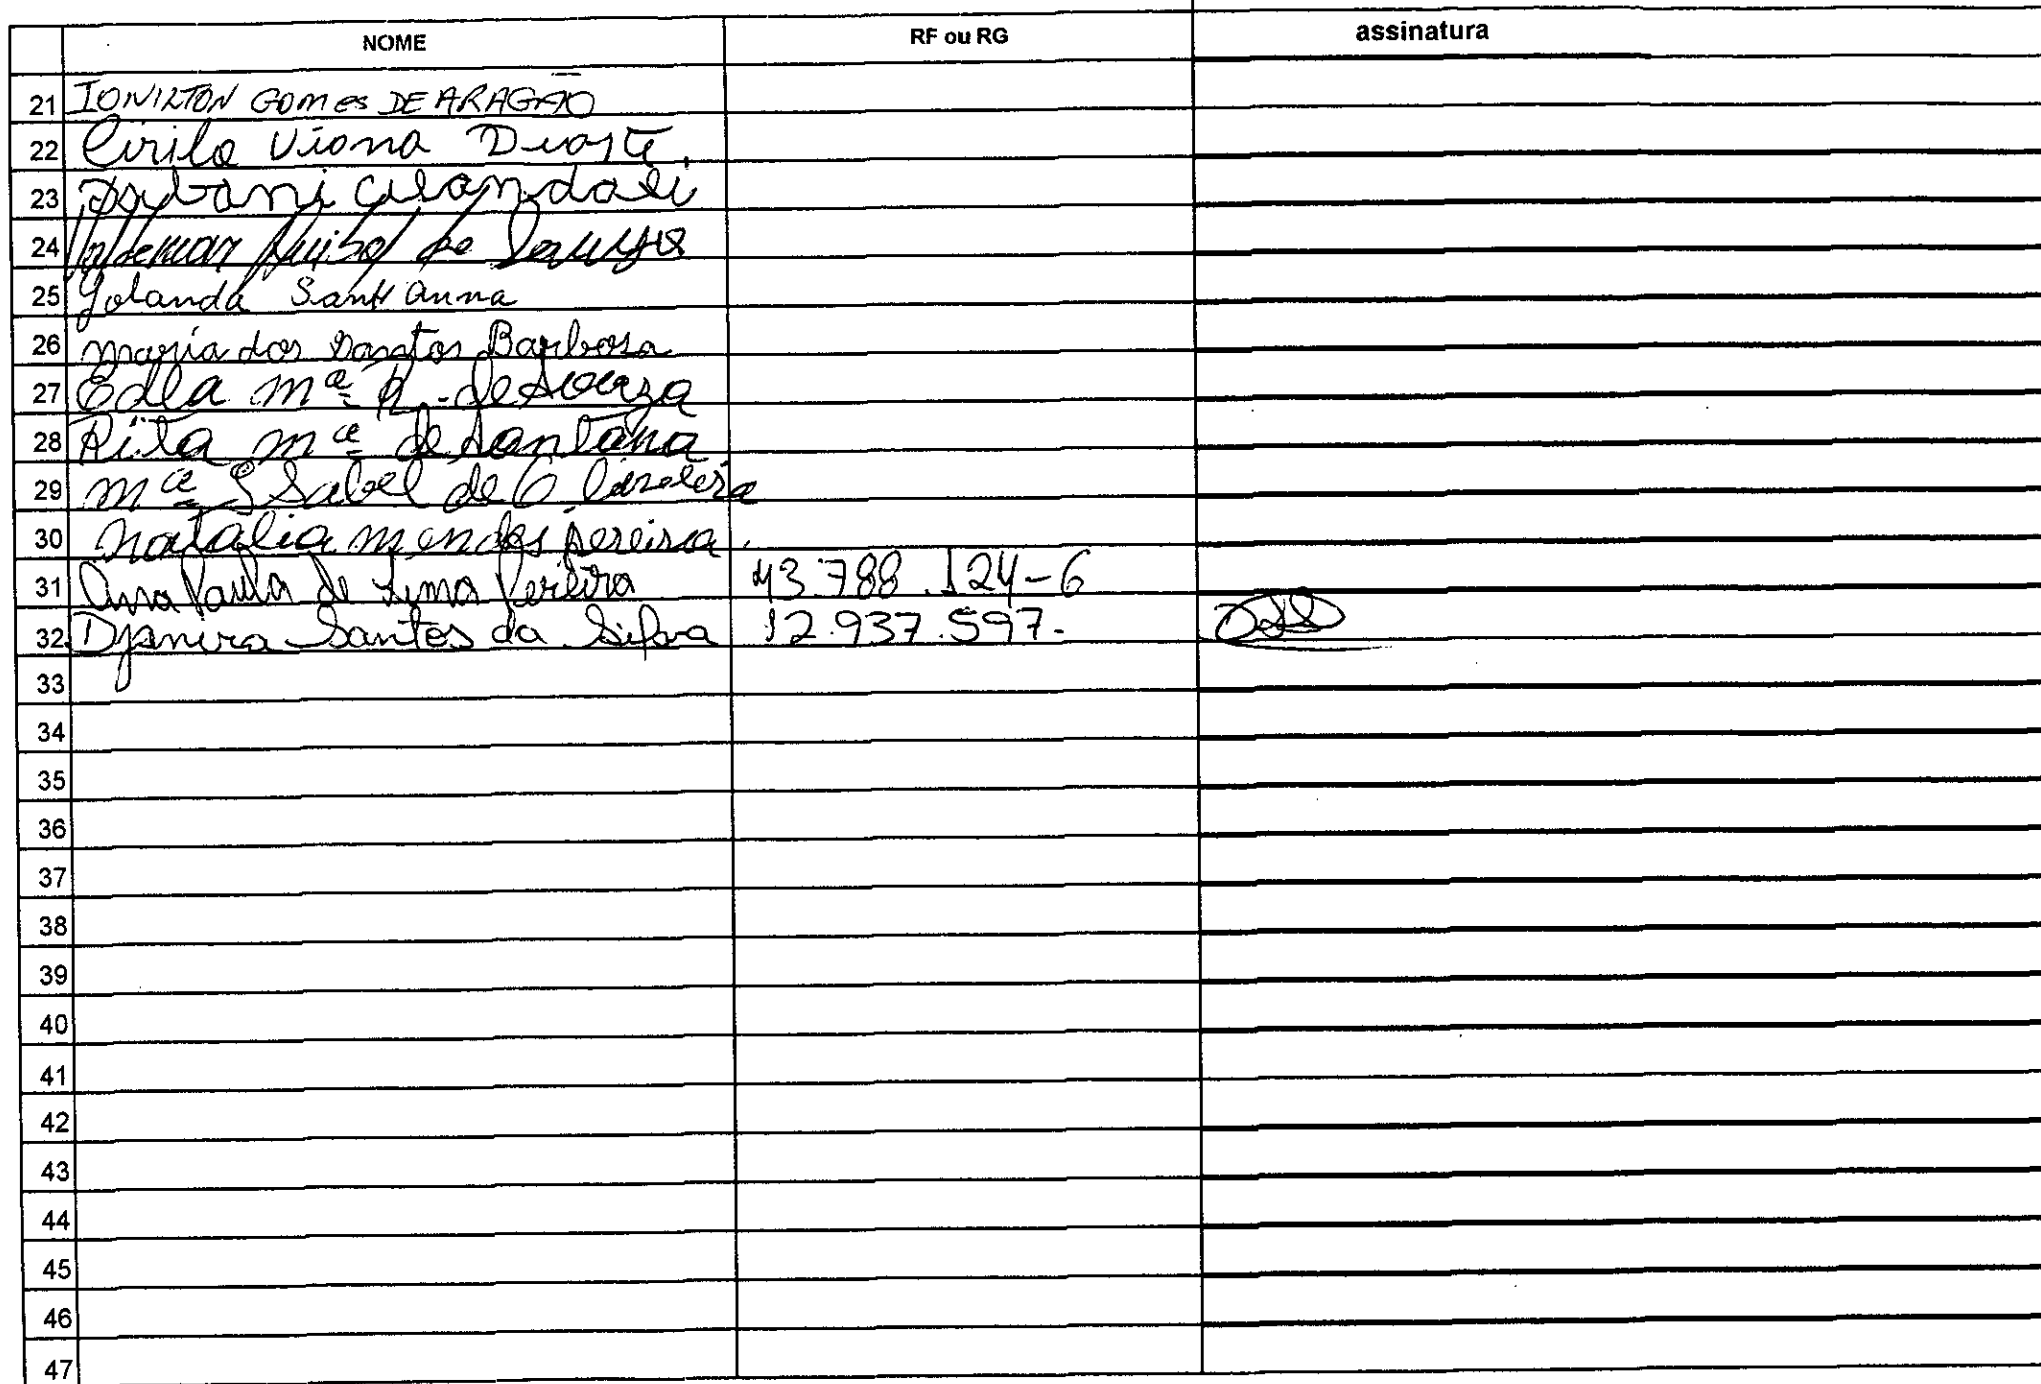 NOME RF ou RG assinatura
21 IONILTON GOMES DE ARAGÃO
22 Cirila Viana Duarte
23
24 Valdemar de
25 Yolanda Sant'Anna
26 Maria dos Santos Barbosa
27 Edla Mª R. de Souza
28 Rita Mª de Santana
29 Mª Isabel de Oliveira
30 Natalia Mendes Pereira
31 Ana Paula de Lima Pereira 43.788.124-6
32 Djanira Santos da Silva 12.937.597-
33
34
35
36
37
38
39
40
41
42
43
44
45
46
47